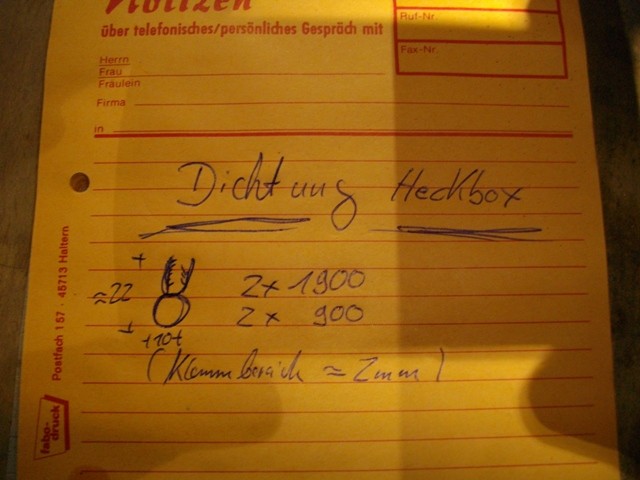 Notizen
über telefonisches/persönliches Gespräch mit
Ruf-Nr.
Fax-Nr.
Herrn
Frau
Fräulein
Firma
in
Dichtung Heckbox
≈22
2x 1900
2x 900
+10+
(Klemmbereich ≈ 2mm)
Postfach 1 57 · 45713 Haltern
fabo-
druck